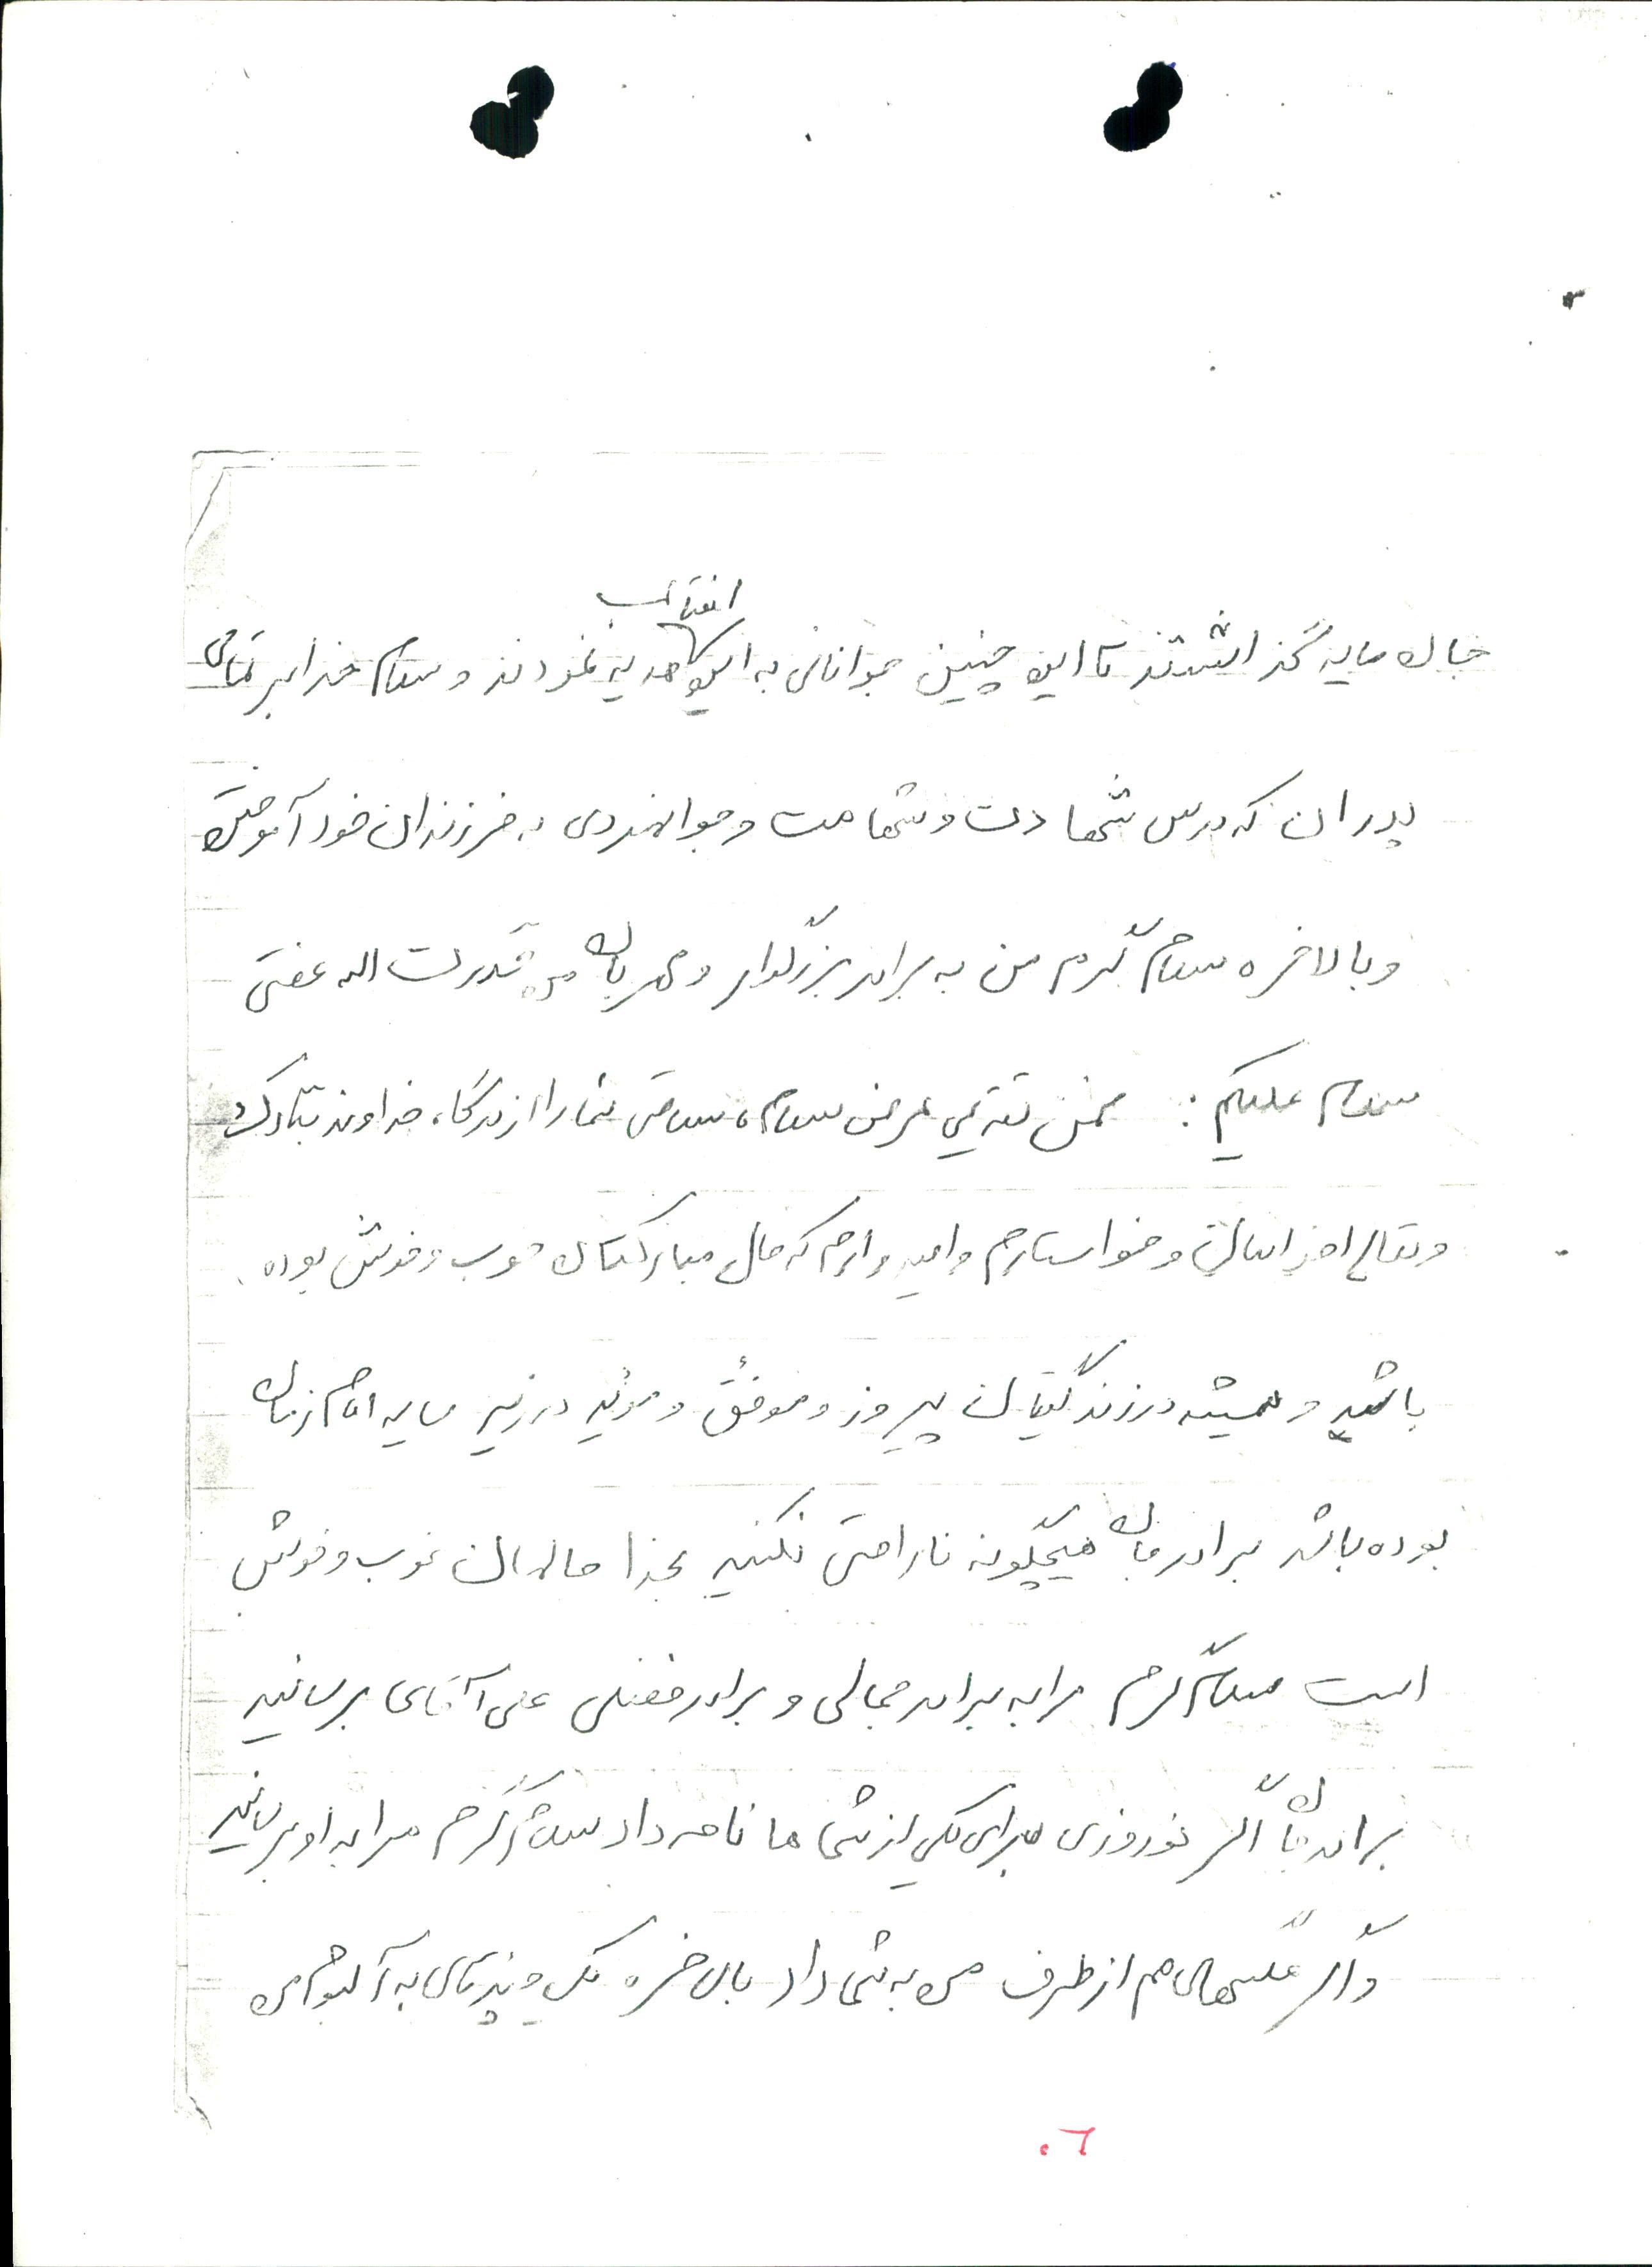 جان مایه گذاشتند تا این چنین جوانانی به این انقلاب هدیه نمودند و سلام خدا بر تمامی
پدران که درس شهادت و شهامت و جوانمردی به فرزندان خود آموختن
و بالاخره سلام گرم من به برادر بزرگوار و مهربانم قدرت اله عفتی
سلام علیکم : ضمن تقدیم عرض سلام، سلامتی شما را از درگاه خداوند تبارک
و تعالی از ایشان و خواستارم و امیدوارم که حال مبارکتان خوب و خوش بوده
باشید و همیشه در زندگیتان پیروز و موفق و مؤید در زیر سایه امام زمان
بوده باشد برادر جان هیچگونه ناراحتی نکنید بخدا حالمان خوب و خوش
است سلام گرم مرا به برادر جمالی و برادر فضلی علی آقای برسانید
برادر جان اگر نوروزی برای یکی از شماها نامه داد سلام گرم مرا به او برسانید
و اگر عکسهای هم از طرف من به شما داد بالاخره یک چندتای به آلبوم من
۰۶